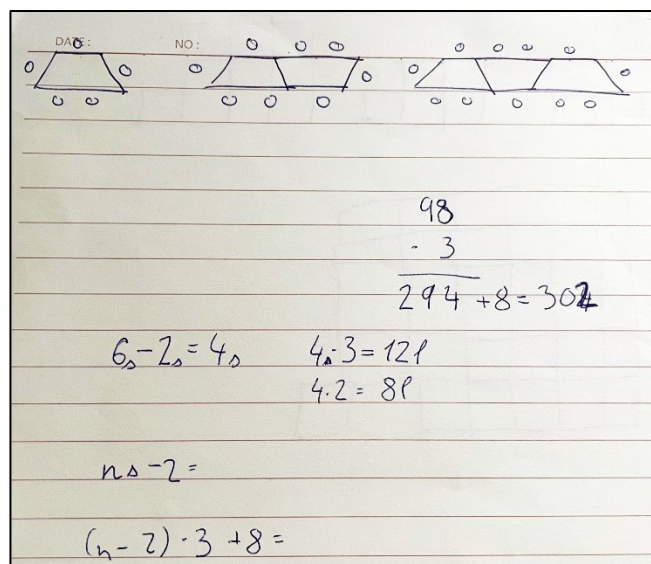 DATE: NO:
98
· 3
294 + 8 = 302
6s - 2s = 4s 4s · 3 = 12l
4 · 2 = 8l
ns - 2 =
(n - 2) · 3 + 8 =